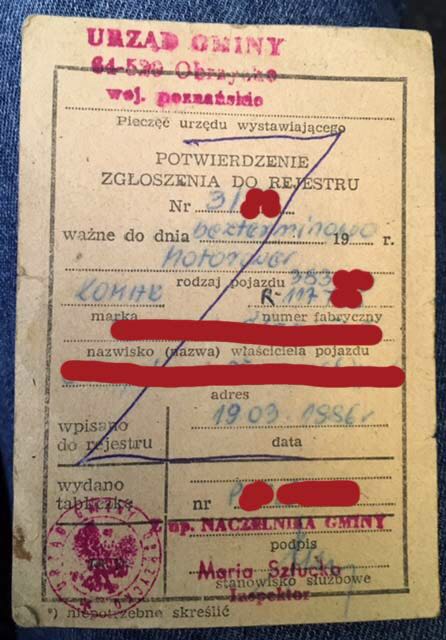 URZĄD GMINY
64-520 Obrzycko
woj. poznańskie
Pieczęć urzędu wystawiającego
POTWIERDZENIE
ZGŁOSZENIA DO REJESTRU
Nr 31
ważne do dnia bezterminowo 19 r.
Motorower
rodzaj pojazdu 383
KOMAR R-1177
marka numer fabryczny
nazwisko (nazwa) właściciela pojazdu
adres
wpisano 19.03.1986r
do rejestru data
wydano
tabliczkę nr P
z up. NACZELNIKA GMINY
podpis
Maria Szłucka
stanowisko służbowe
Inspektor
*) niepotrzebne skreślić